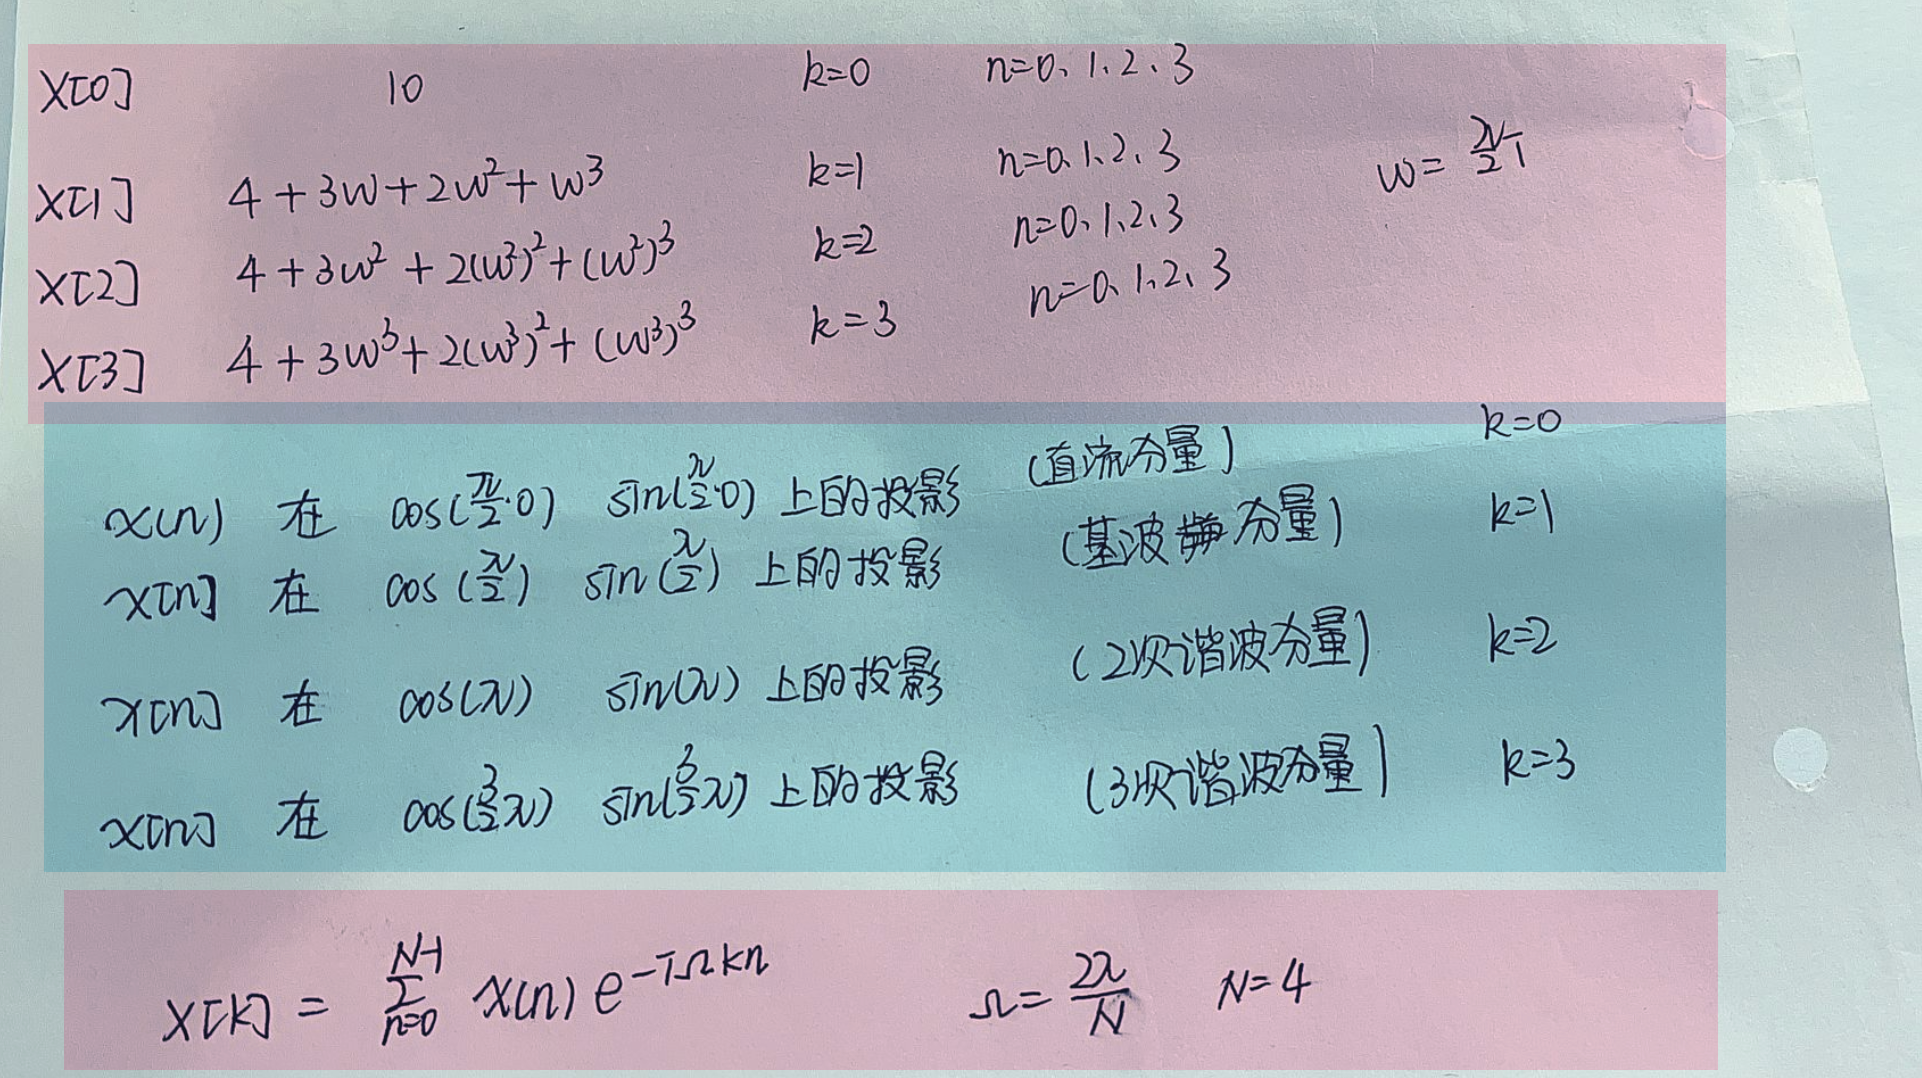 X[0] 10 k=0 n=0、1、2、3
X[1] 4+3w+2w²+w³ k=1 n=0、1、2、3 w=π/2 i
X[2] 4+3w²+2(w²)²+(w²)³ k=2 n=0、1、2、3
X[3] 4+3w³+2(w³)²+(w³)³ k=3 n=0、1、2、3
x(n) 在 cos(π/2·0) sin(π/2·0) 上的投影 (直流分量) k=0
x[n] 在 cos(π/2) sin(π/2) 上的投影 (基波分量) k=1
x[n] 在 cos(π) sin(π) 上的投影 (2次谐波分量) k=2
x[n] 在 cos(3/2π) sin(3/2π) 上的投影 (3次谐波分量) k=3
X[k] = Σ_{n=0}^{N-1} x(n) e^{-jΩkn} Ω=2π/N N=4